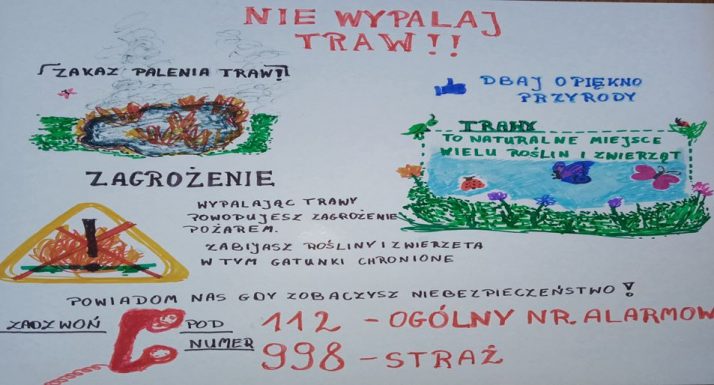 NIE WYPALAJ
TRAW!!
ZAKAZ PALENIA TRAW!!
DBAJ O PIĘKNO
PRZYRODY
TRAWY
TO NATURALNE MIEJSCE
WIELU ROŚLIN I ZWIERZĄT
ZAGROŻENIE
WYPALAJĄC TRAWY
POWODUJESZ ZAGROŻENIE
POŻAREM.
ZABIJASZ ROŚLINY I ZWIERZĘTA
W TYM GATUNKI CHRONIONE
POWIADOM NAS GDY ZOBACZYSZ NIEBEZPIECZEŃSTWO!
ZADZWOŃ POD
NUMER
112 - OGÓLNY NR. ALARMOW
998 - STRAŻ